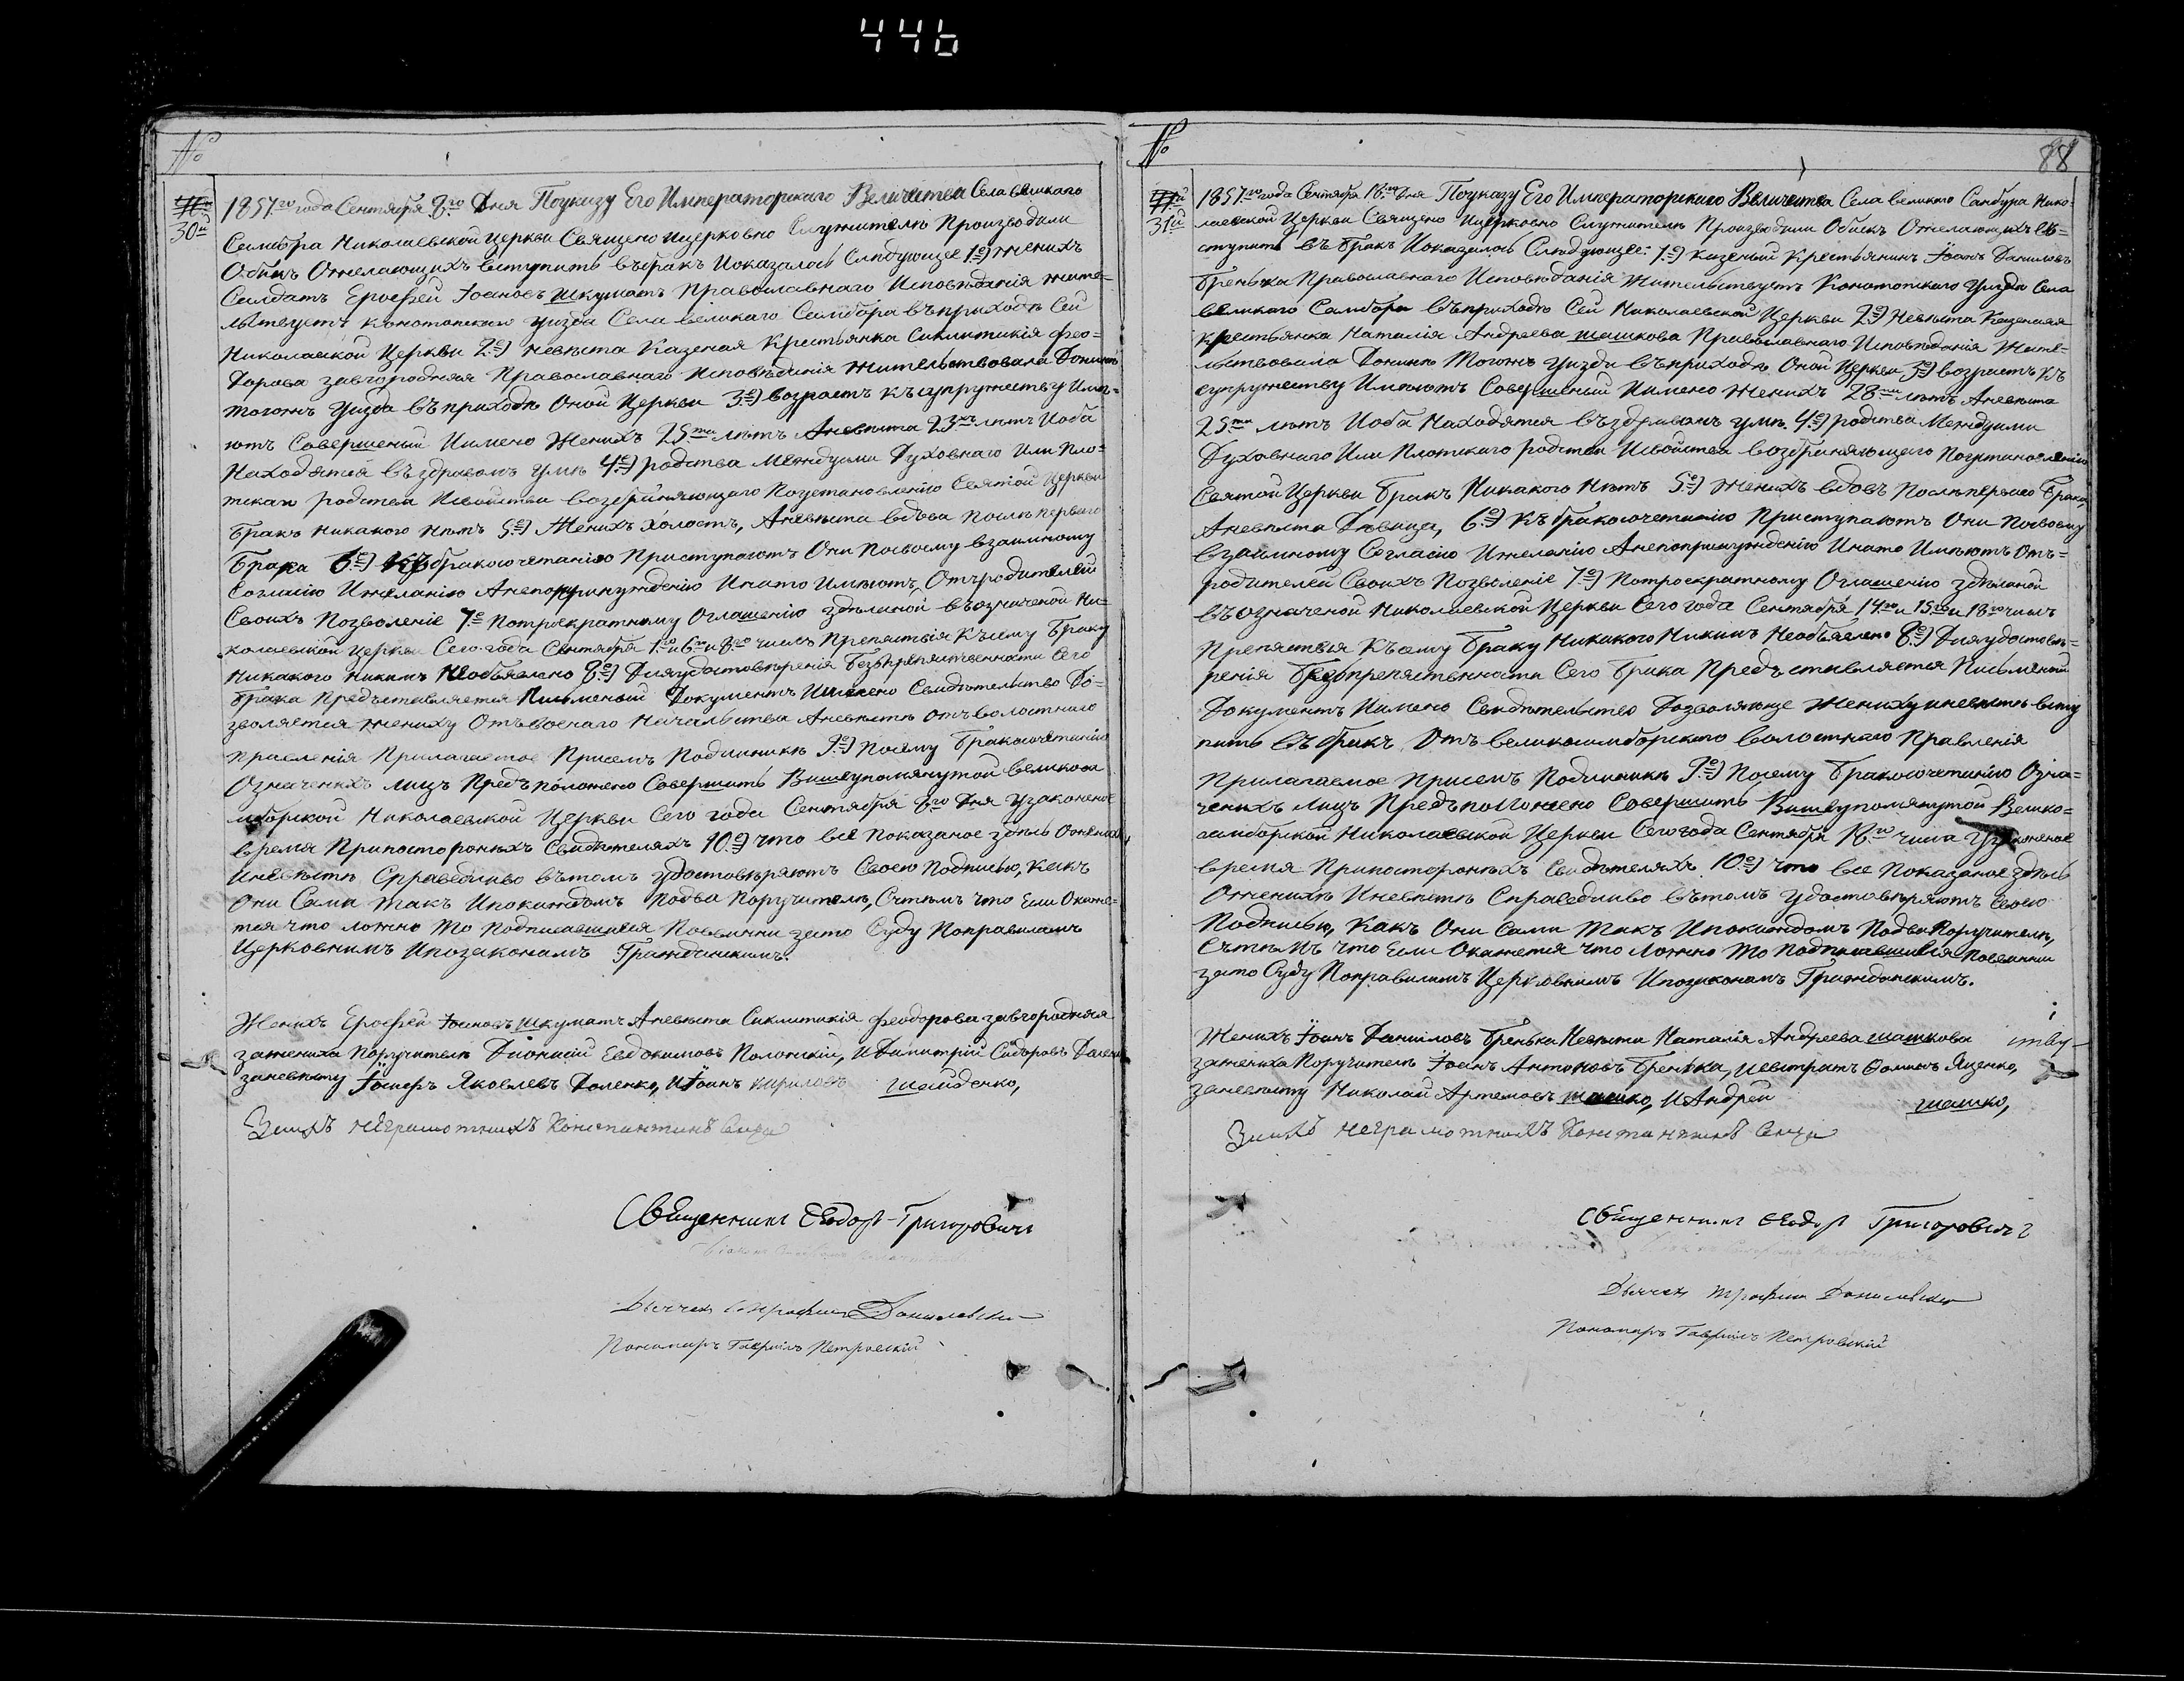 446
№
30й
1857го года Сентября 8го Дня Поуказу Его Императорскаго Величества Села великаго
Самбора Николаевской Церкви Священо Ицерковно Служители Производили
Обыскъ Ожелающихъ вступить въбракъ Ипоказалось Слѣдующее 1е) женихъ
Салдатъ Ерофей Іоановъ Шкуматъ Православнаго Исповѣданія жите=
льствуетъ Конотопскаго уизда Села великаго Самбора въприходѣ Сей
Николаевской Церкви 2е) невѣста Казеная Крестьянка Сиклитикія Фео=
дорова завгородняя Православнаго Исповѣданія жительствовала Донинѣ
тогожъ уизда въприходѣ Оной Церкви 3е) возрастъ къ супружеству Имѣ=
ютъ Совершеный Иимено Женихъ 25ти лѣтъ Аневѣста 23хъ лѣтъ Иоба
Находятся въздравомъ умѣ 4е) родства Междуими Духовнаго Или Пло=
тскаго родства Исвойства возбраняющаго Поустановленію Святой Церкви
бракъ никакого нѣтъ 5е) Женихъ холостъ, Аневѣста вдова послѣ перваго
Брака 6е) Къ бракосочетанію Приступаютъ Они Посвоему взаимному
Согласію Ижеланію Анепопринужденію Инато Имѣютъ Отъродителей
Своихъ Позволеніе 7е Потроекратному Оглашенію здѣланой въозначеной Ни=
колаевской Церкви Сего года Сентября 1го и 6го и 8го числъ Препятствія Късему Браку
Никакого никимъ Необъявлено 8е) Дляудостовѣренія Безпрепятственности Сего
брака Предъставляется Письменый Документъ Иимено Свидѣтельство До=
зволяется жениху Отъвоенаго Начальства Аневѣстѣ отъволостнаго
правленія Прилагаемое Присемъ Подлинникѣ 9е) Посему Бракосочетанію
Означеныхъ лицъ Предъположено Совершить Вышеупомянутой великоса
мборской Николаевской Церкви Сего года Сентября 8го Дня Узаконеное
время Припостороныхъ Свидѣтеляхъ 10е) что все Показаное здѣсь Ожених
Иневѣстѣ Справедливо вътомъ удостовѣряютъ Своею Подписью, Какъ
Они Сами такъ Ипокаждомъ Подва Поручителѣ, Стѣмъ что Если Окаже=
тся что ложно то Подписавшіися Повинни зато Суду Поправиламъ
Церковнимъ Ипозаконамъ Гражданскимъ.
Женихъ Ерофей Іоановъ Шкуматъ Аневѣста Сиклитикія Феодорова завгородняя
зажениха Поручителѣ Діонисій Евдокимовъ Полонскій, И Димитрій Сидоровъ
заневѣсту Яковлевъ Доленко, И Іоанъ Кириловъ Шайденко,
Заихъ неграмотныхъ Константинъ
Священникъ Ѳеодоръ Григоровичъ
Дьячекъ Трофим Данилевски
Пономаръ Гавріилъ Петровскій
№
88
31й
1857го года Сентября 18го Дня Поуказу Его Императорскаго Величества Села великаго Самбура Нико=
лаевской Церкви Священо Ицерковно Служители Производили Обискъ Ожелающихъ вь=
ступить въ Бракъ Ипоказалось Слѣдующее: 1е) казеный Крестьянинъ Іоанъ Даниловъ
Бренька Православнаго Исповѣданія Жительствуетъ Конотопскаго Уизда Села
великаго Самбора въприходѣ Сей Николаевской Церкви 2е) Невѣста Казенная
Крестьянка Наталія Андреева шашкова Православнаго Исповѣданія Жите=
льствовала Донинѣ Тогожъ уизда въприходѣ Оной Церкви 3е) возрастъ Къ
супружеству Имѣютъ Совершеный Иимено Женихъ 28ми лѣтъ Аневѣста
25ти лѣтъ Иоба Находятся въздравомъ умѣ 4е) родства Междуими
Духовнаго Или Плотскаго родства Исвойства возбраняющаго Поустановленію
Святой Церкви бракъ Никакого Нѣтъ 5е) Женихъ вдовъ Послѣперваго Брака,
Аневѣста Дѣвица, 6е) Къ бракосочетанію Приступаютъ Они Посвоему
взаимному Согласію Ижеланію Анепопринужденію Инато Имѣютъ Отъ=
родителей Своихъ Позволеніе 7е) Потроекратному Оглашенію здѣланой
въозначеной Николаевской Церкви Сего года Сентября 14го и 15го и 18го числъ
Препятствія Късему Браку Никакого Никимъ Необъявлено 8е) Дляудостовѣ=
ренія Безпрепятственности Сего Брака Предъставляется Письменый
Документъ Иимено Свидѣтельство Дозволяюще Жениху иневѣстѣ всту
пить въ бракъ Отъ великосамборскаго волостнаго Правленія
Прилагаемое Присемъ Подлинникѣ 9е) Посему Бракосочетанію Озна=
ченихъ лицъ Предъположено Совершить Вишеупомянутой Велико=
самборской Николаевской Церкви Сегогода Сентября 18го числа Узаконеное
время Припостороныхъ Свидѣтеляхъ 10е) Что все Показаное здѣсь
Оженихѣ Иневѣстѣ Справедливо вътомъ Удостовѣряютъ Своею
Подписью, Какъ Они Сами Такъ Ипокаждомъ Подва Поручителѣ,
Сътѣмъ что Если Окажется что Ложно То Подписавшіися Повинни
зато Суду Поправиламъ Церковнимъ Ипозаконамъ Гражданскимъ.
Женихъ Іоанъ Даниловъ Бренька Невѣста Наталія Андреева шашкова
зажениха Поручителѣ Іоанъ Антоновъ Бренька, Иевстратъ Яценко,
заневѣсту Николай Артемовъ шашко, И Андрей шашко,
Заихъ неграмотныхъ Константинъ
Священникъ Ѳеодоръ Григоровичъ
Дьячекъ Трофим Данилевски
Пономаръ Гавріилъ Петровскій